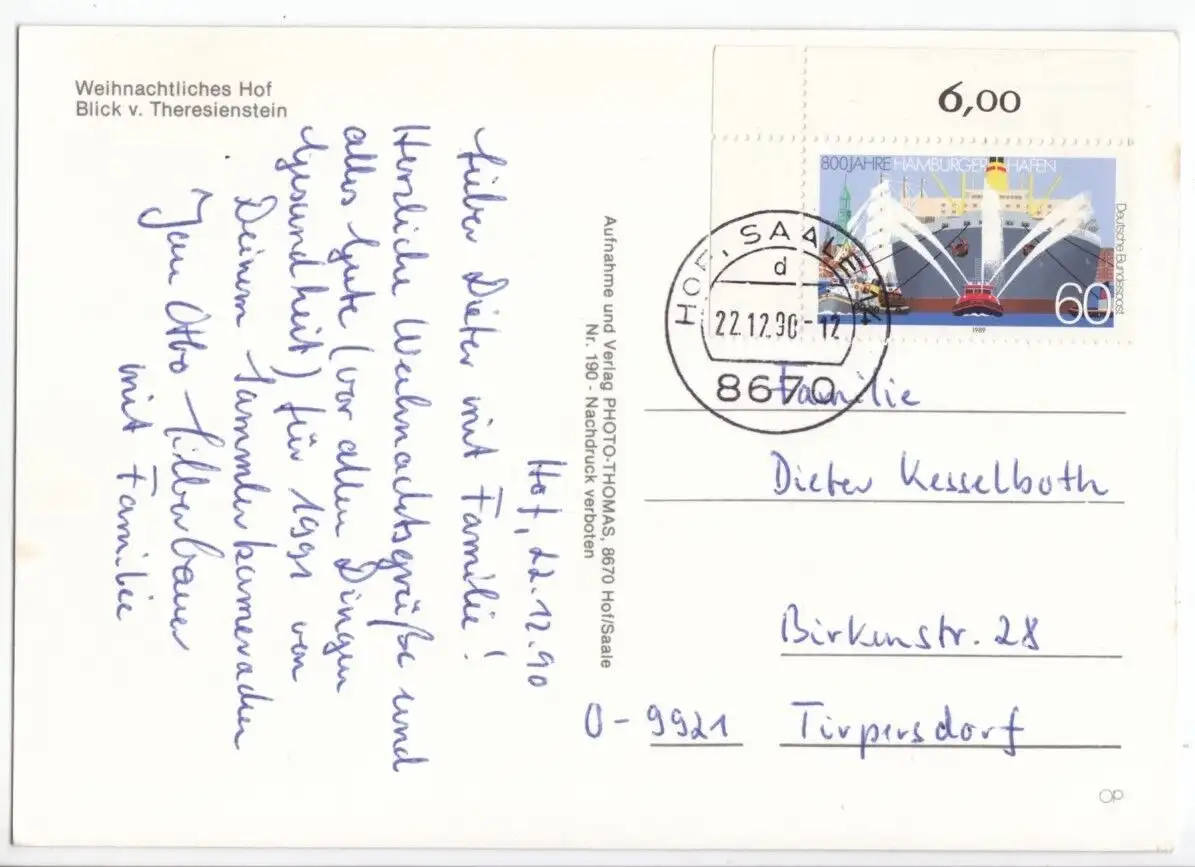 Weihnachtliches Hof
Blick v. Theresienstein
Hof, 22.12.90
Lieber Dieter mit Familie!
Herzliche Weihnachtsgrüße und
alles Gute (vor allen Dingen
Gesundheit) für 1991 von
Deinem Sammlerkameraden
Otto Silberbauer
mit Familie
Aufnahme und Verlag PHOTO-THOMAS, 8670 Hof/Saale
Nr. 190 - Nachdruck verboten
6,00
800 JAHRE HAMBURGER HAFEN
Deutsche Bundespost
60
1989
HOF, SAALE
d
22.12.90-12
8670
Familie
Dieter Kesselboth
Birkenstr. 28
O-9921 Tirpersdorf
OP